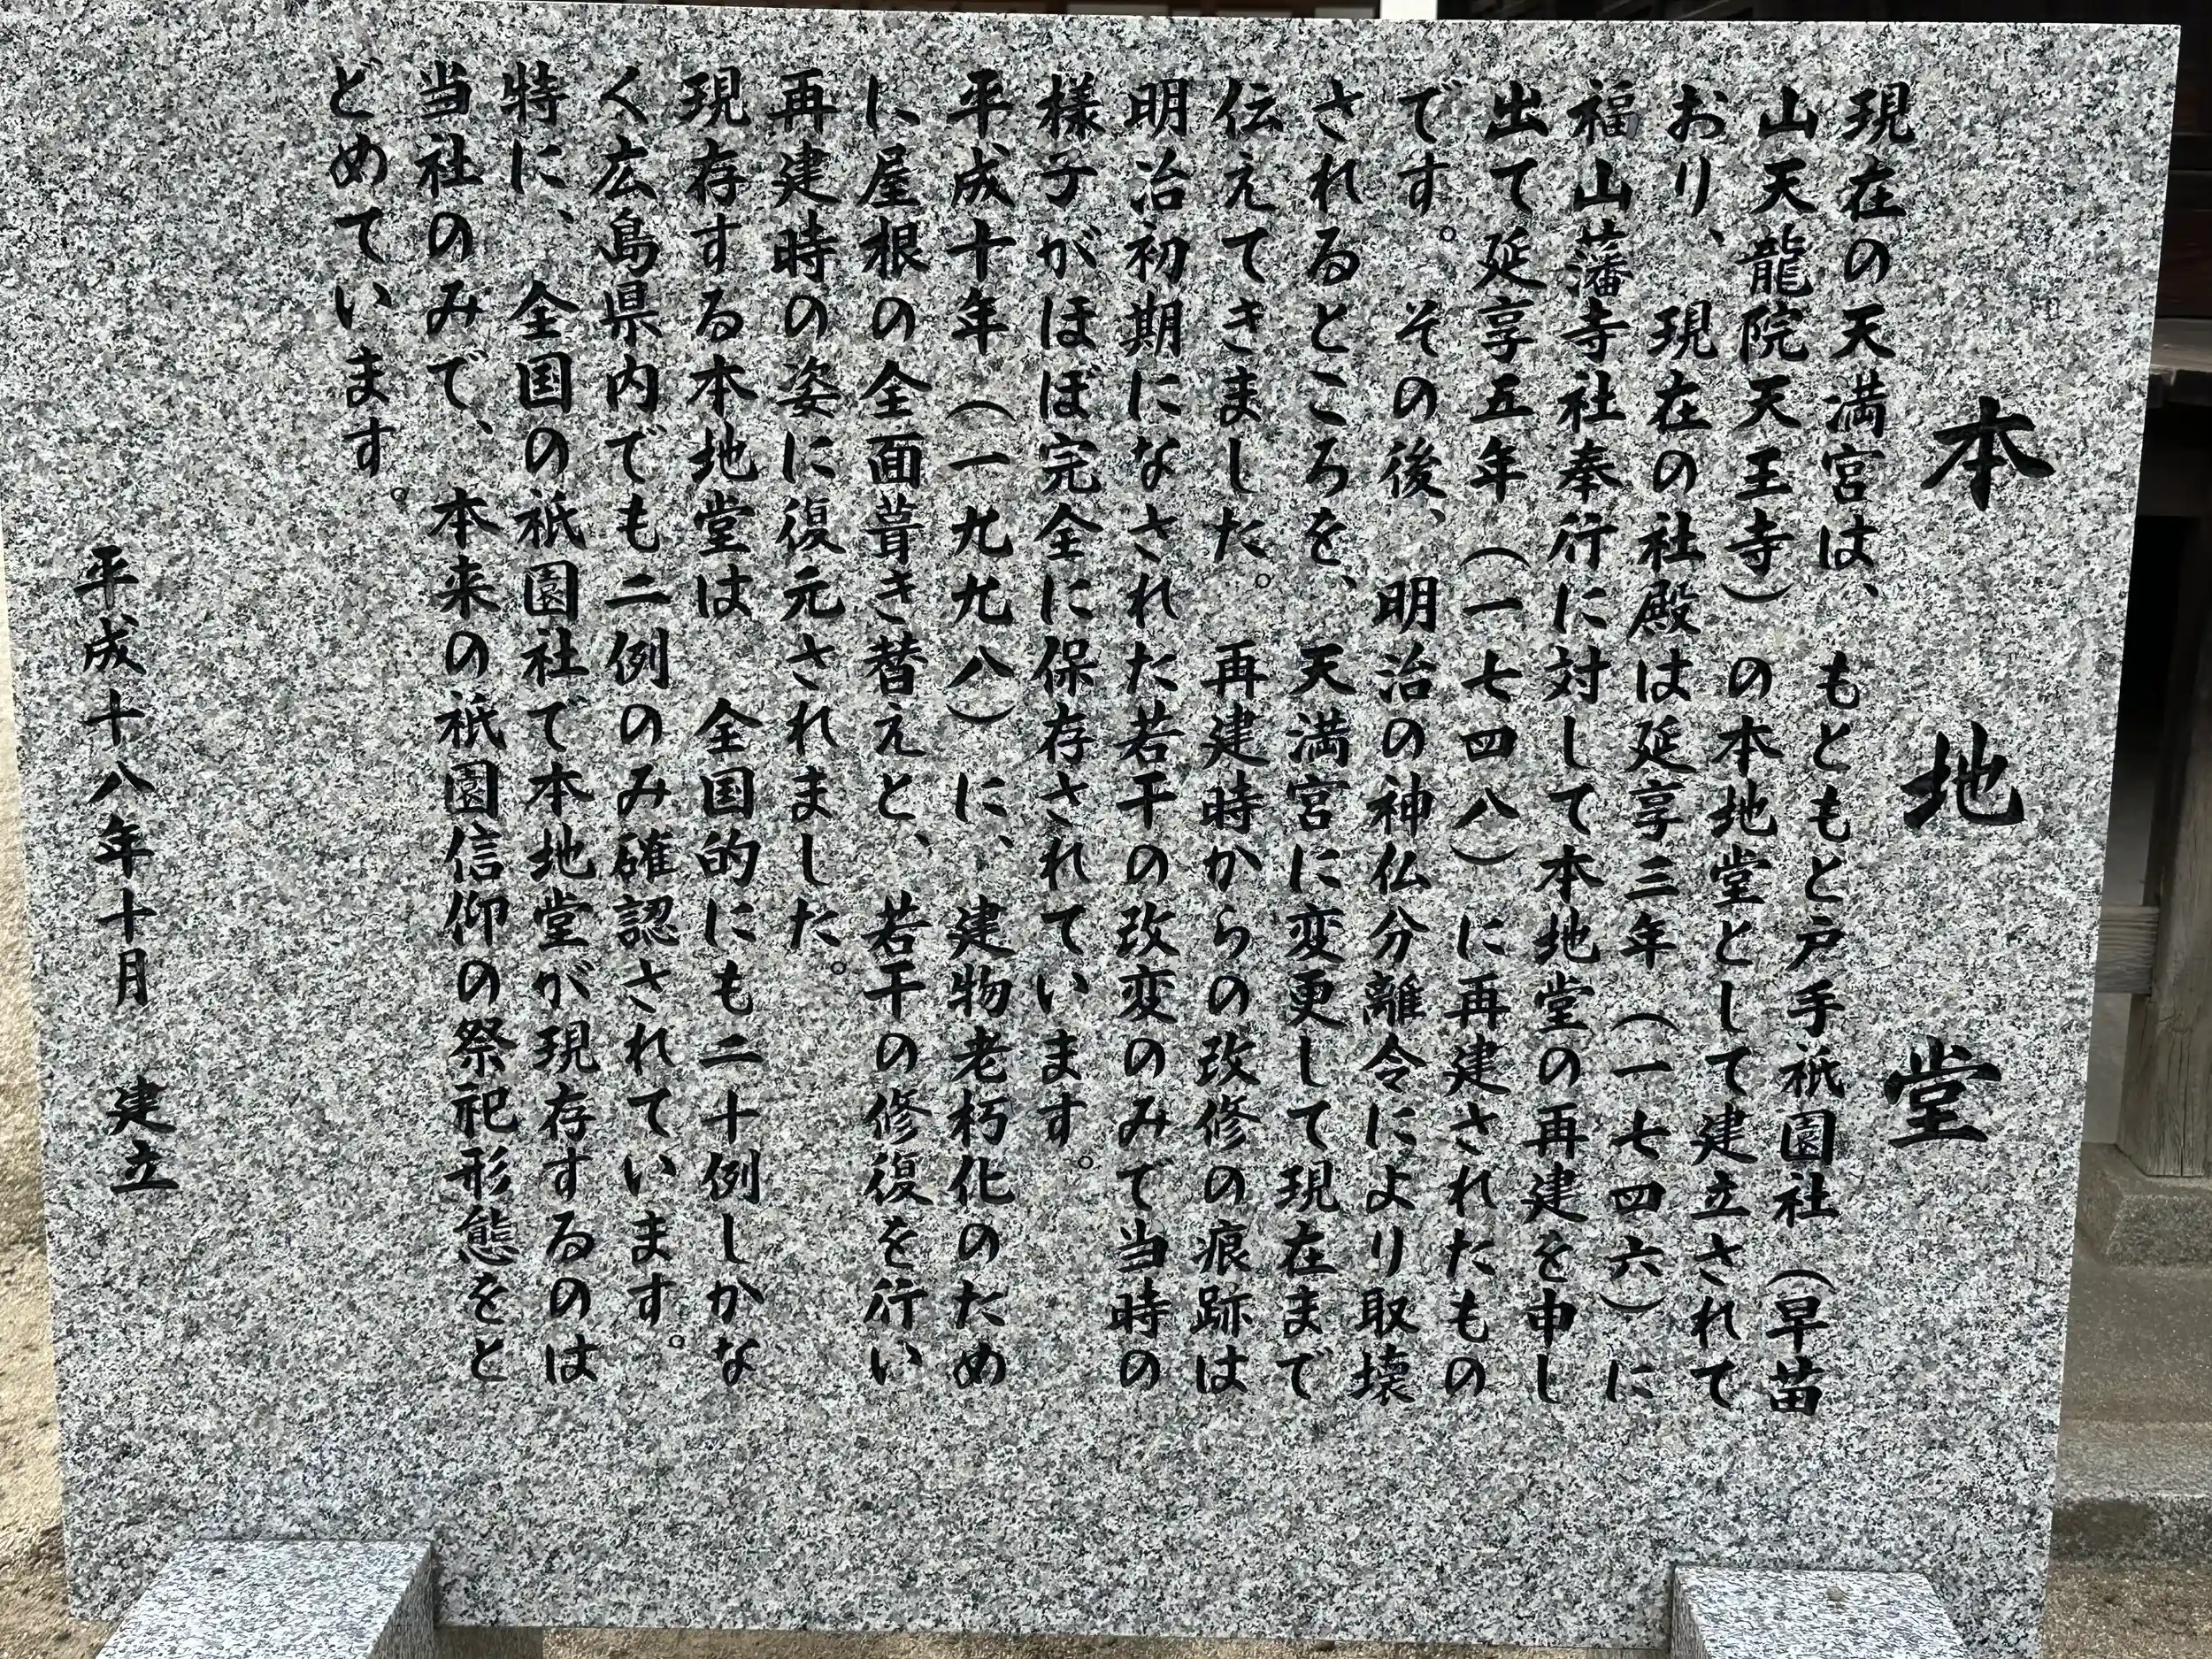 本地堂
現在の天満宮は、もともと戸手祇園社(早苗
山天龍院天王寺)の本地堂として建立されて
おり、現在の社殿は延享三年(一七四六)に
福山藩寺社奉行に対して本地堂の再建を申し
出て延享五年(一七四八)に再建されたもの
です。その後、明治の神仏分離令により取壊
されるところを、天満宮に変更して現在まで
伝えてきました。再建時からの改修の痕跡は
明治初期になされた若干の改変のみで当時の
様子がほぼ完全に保存されています。
平成十年(一九九八)に、建物老朽化のため
に屋根の全面葺き替えと、若干の修復を行い
再建時の姿に復元されました。
現存する本地堂は 全国的にも二十例しかな
く広島県内でも二例のみ確認されています。
特に、全国の祇園社で本地堂が現存するのは
当社のみで、本来の祇園信仰の祭祀形態をと
どめています。
平成十八年十月 建立